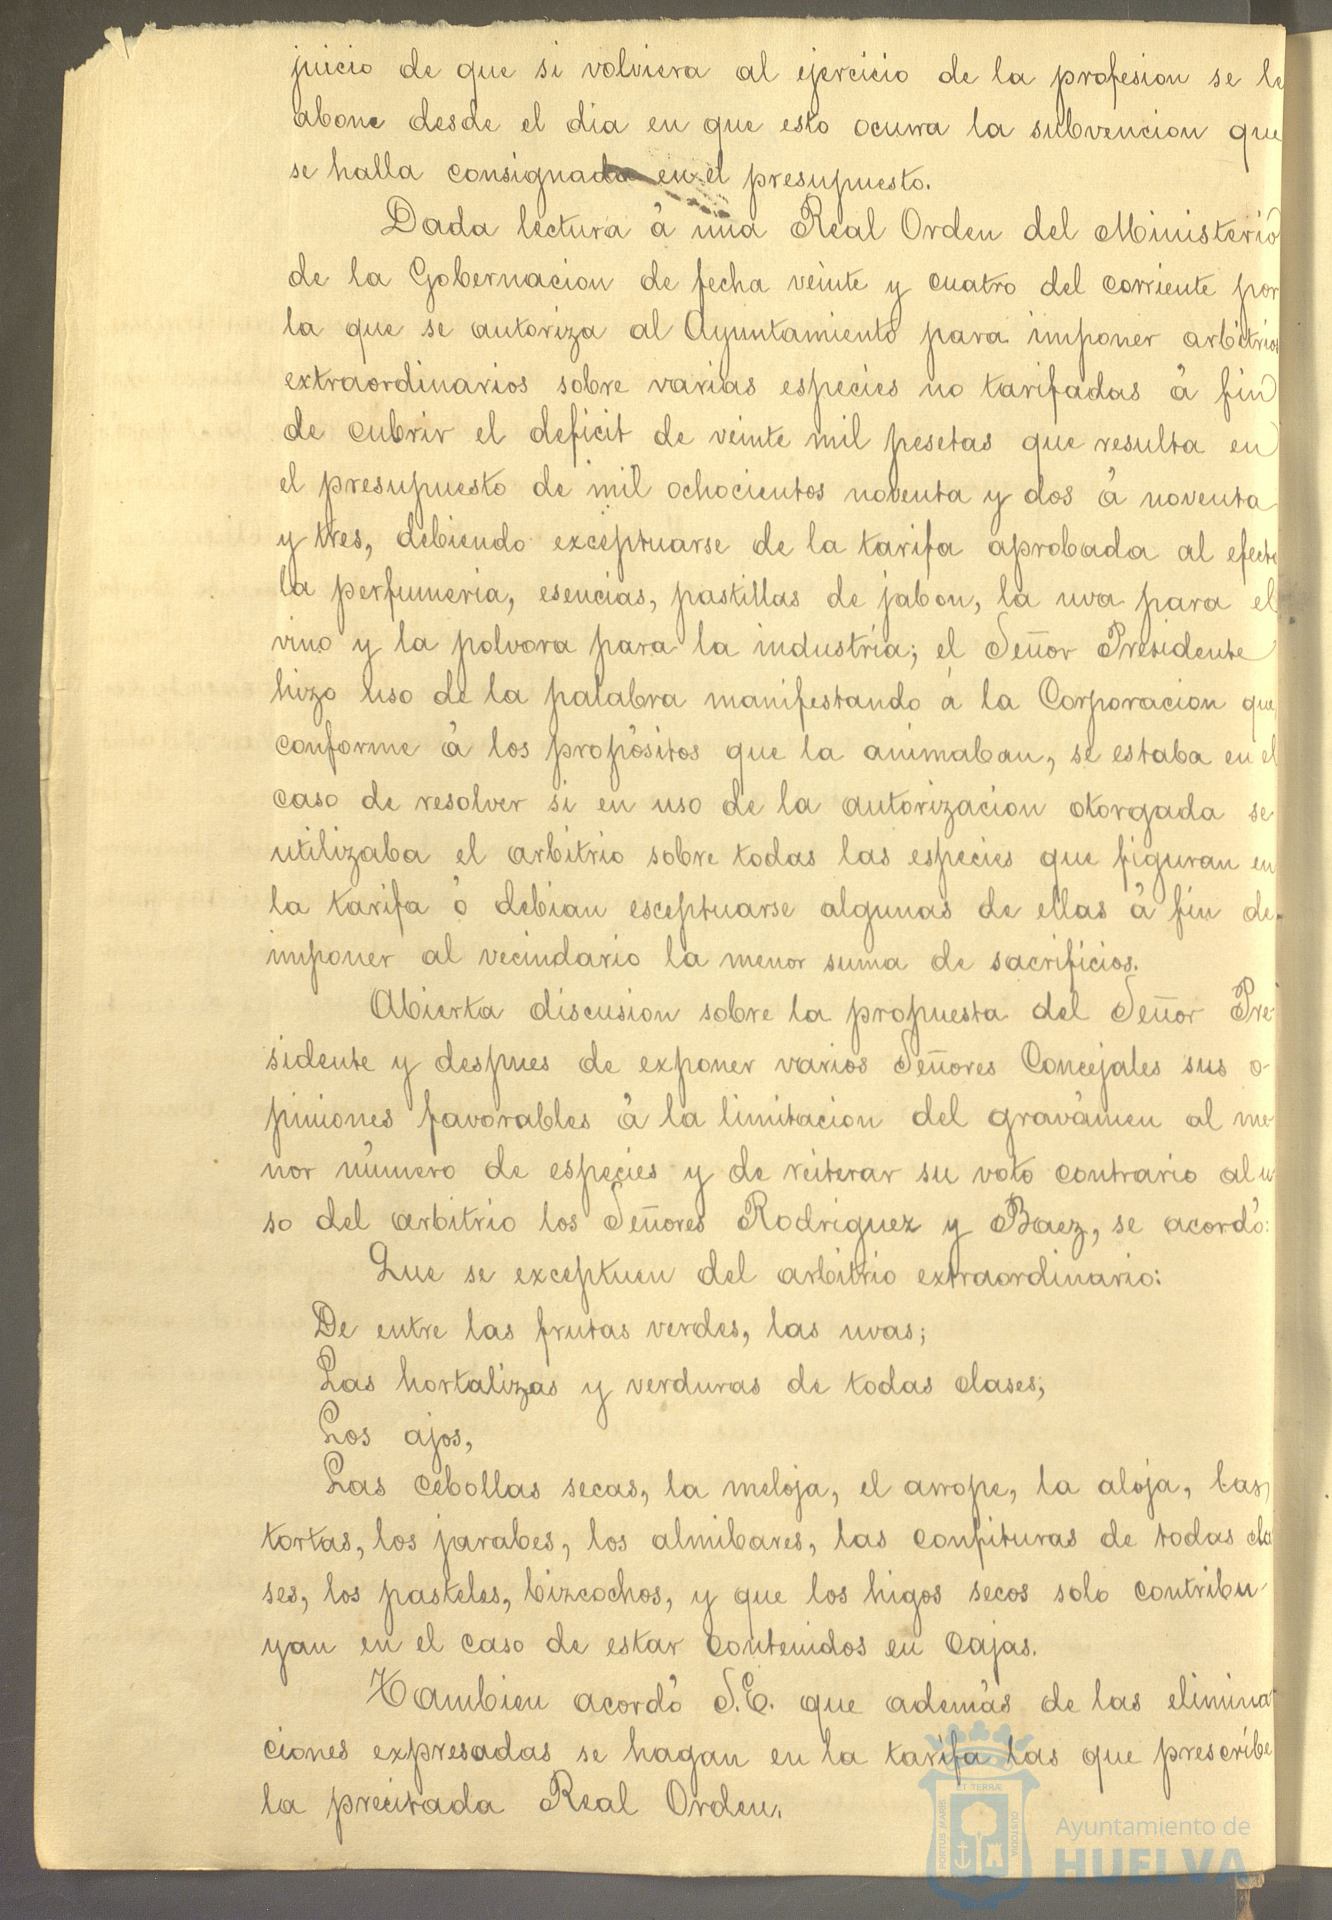 juicio de que si volviera al ejercicio de la profesion se le
abone desde el dia en que esto ocurra la subvencion que
se halla consignada en el presupuesto.
Dada lectura á una Real Orden del Ministerio
de la Gobernacion de fecha veinte y cuatro del corriente por
la que se autoriza al Ayuntamiento para imponer arbitrios
extraordinarios sobre varias especies no tarifadas á fin
de cubrir el deficit de veinte mil pesetas que resulta en
el presupuesto de mil ochocientos noventa y dos á noventa
y tres, debiendo exceptuarse de la tarifa aprobada al efecto
la perfumeria, esencias, pastillas de jabon, la uva para el
vino y la polvora para la industria; el Señor Presidente
hizo uso de la palabra manifestando á la Corporacion que
conforme á los propósitos que la animaban, se estaba en el
caso de resolver si en uso de la autorizacion otorgada se
utilizaba el arbitrio sobre todas las especies que figuran en
la tarifa ó debian esceptuarse algunas de ellas á fin de
imponer al vecindario la menor suma de sacrificios.
Abierta discusion sobre la propuesta del Señor Pre-
sidente y despues de exponer varios Señores Concejales sus o-
piniones favorables á la limitacion del gravámen al me-
nor número de especies y de reiterar su voto contrario al u-
so del arbitrio los Señores Rodriguez y Baez, se acordó:
Que se exceptuen del arbitrio extraordinario:
De entre las frutas verdes, las uvas;
Las hortalizas y verduras de todas clases;
Los ajos,
Las cebollas secas, la meloja, el arrope, la aloja, las
tortas, los jarabes, los almibares, las confituras de todas cla
ses, los pasteles, bizcochos, y que los higos secos solo contribu-
yan en el caso de estar contenidos en cajas.
Tambien acordó S.E. que además de las elimina-
ciones expresadas se hagan en la tarifa las que prescribe
la precitada Real Orden.
PORTUS MARIS ET TERRÆ CUSTODIA
Ayuntamiento de
HUELVA